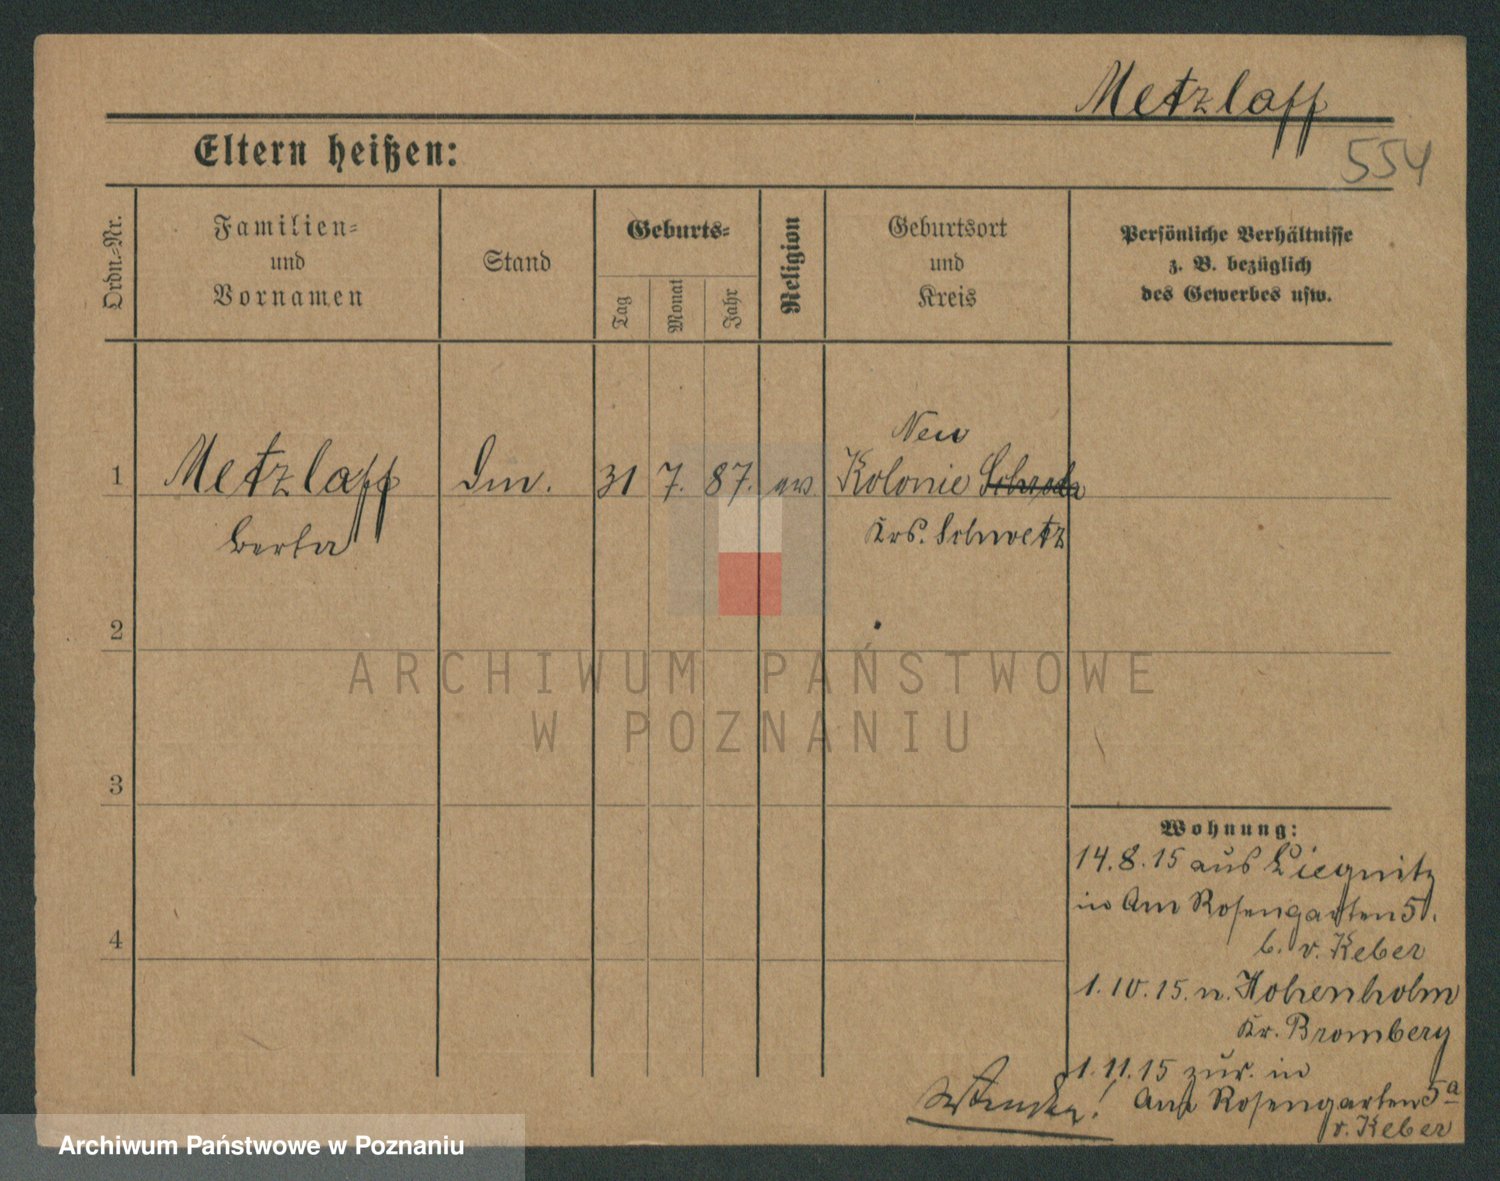 Metzlaff
554
Eltern heißen:
Ordn.-Nr.
Familien-
und
Vornamen
Stand
Geburts-
Tag
Monat
Jahr
Religion
Geburtsort
und
Kreis
Persönliche Verhältnisse
z. B. bezüglich
des Gewerbes usw.
Neu
1 Metzlaff 31 7. 87. ev Kolonie Schroda
Berta Krs. Schwetz
2
3
4
ARCHIWUM PAŃSTWOWE
W POZNANIU
Wohnung:
14.8.15 aus Liegnitz
in Am Rosengarten 5.
b. v. Keber
1.10.15. n. Hohenholm
Kr. Bromberg
1.11.15 zur. in
Am Rosengarten 5a
v. Keber
Wenden!
Archiwum Państwowe w Poznaniu